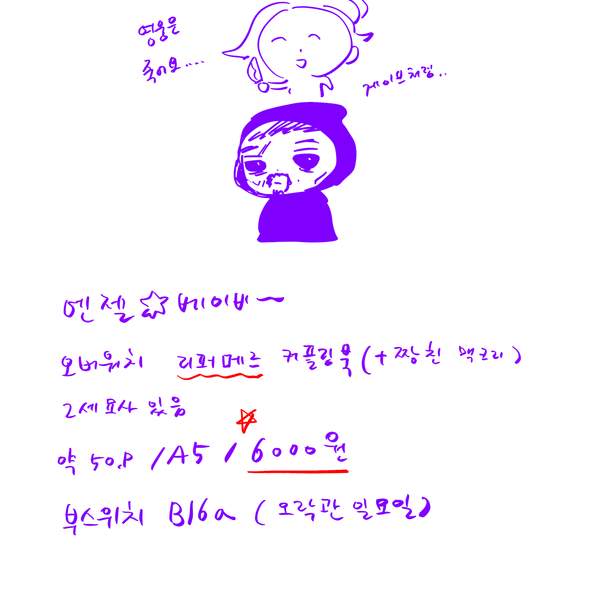 영웅은
죽어요....
제이브처럼..
엔젤☆베이비~
오버워치 리퍼메르 커플링북(+짱친 맥크리)
2세묘사 있음
약 50.P /A5 / 6000원
부스위치 B16a (오락관 일요일)